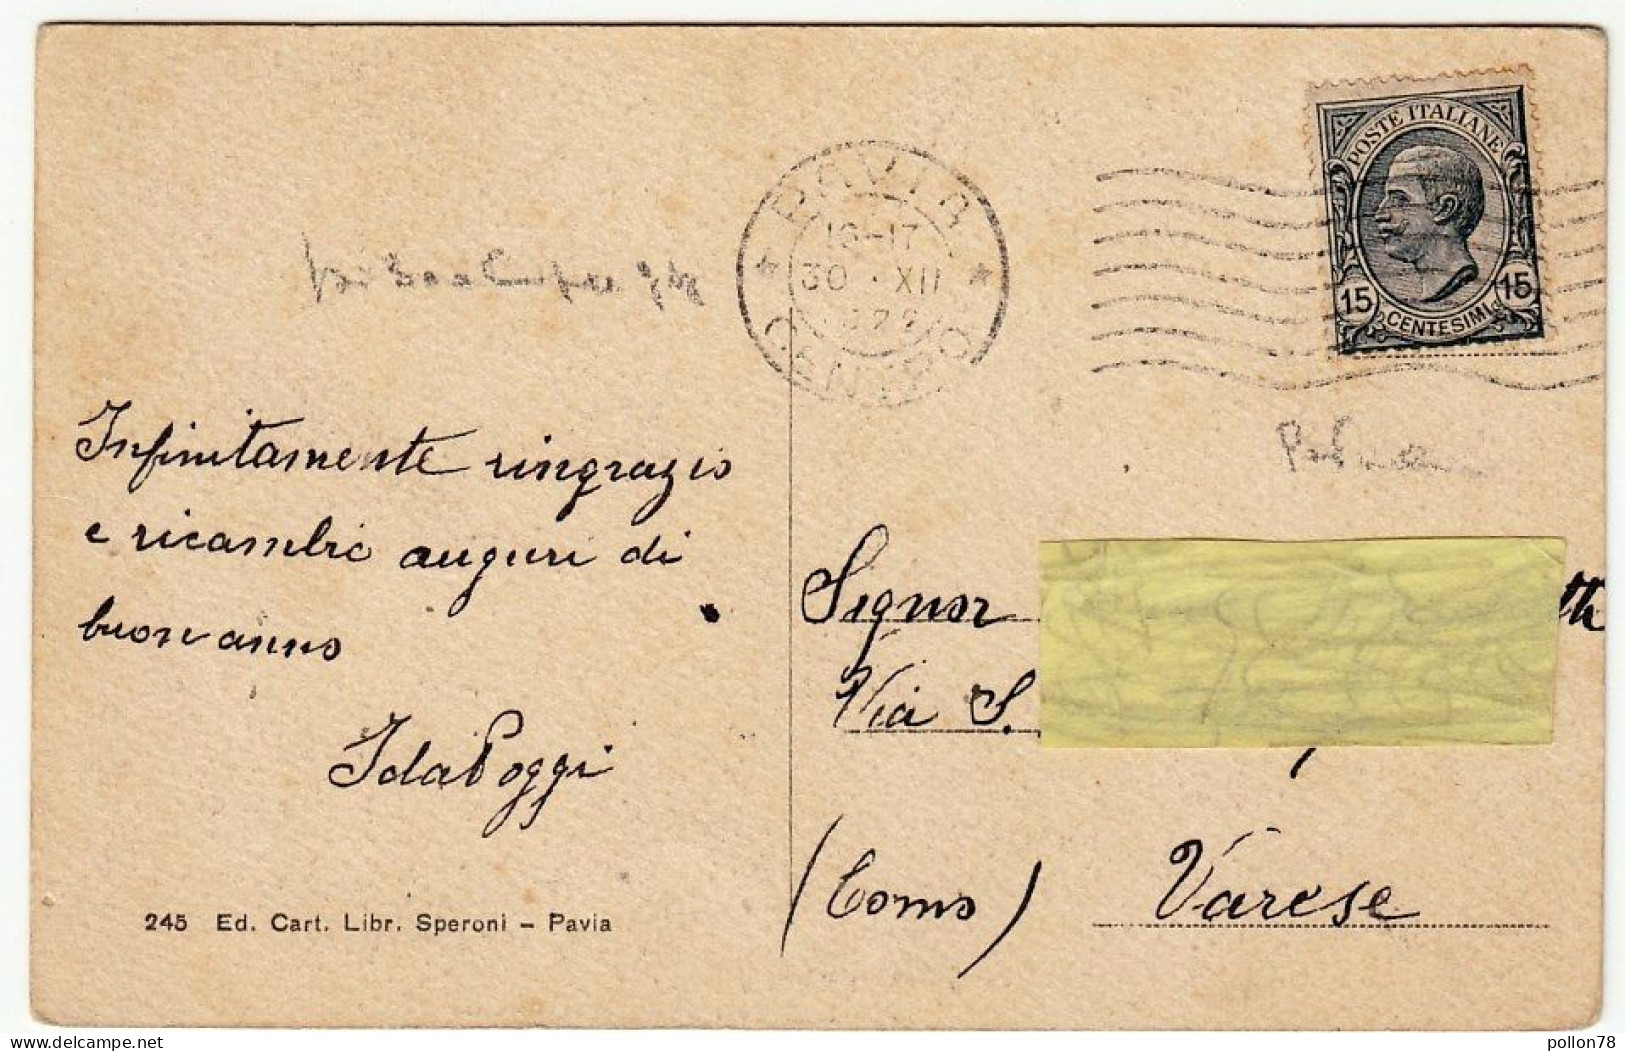 POSTE ITALIANE
15 15
CENTESIMI
PAVIA
16-17
30 · XII
CENTRO
Infinitamente ringrazio
e ricambio auguri di
buon anno
Ida Poggi
245 Ed. Cart. Libr. Speroni – Pavia
Signor
Via S.
(Como) Varese
delcampe.net
pollon78